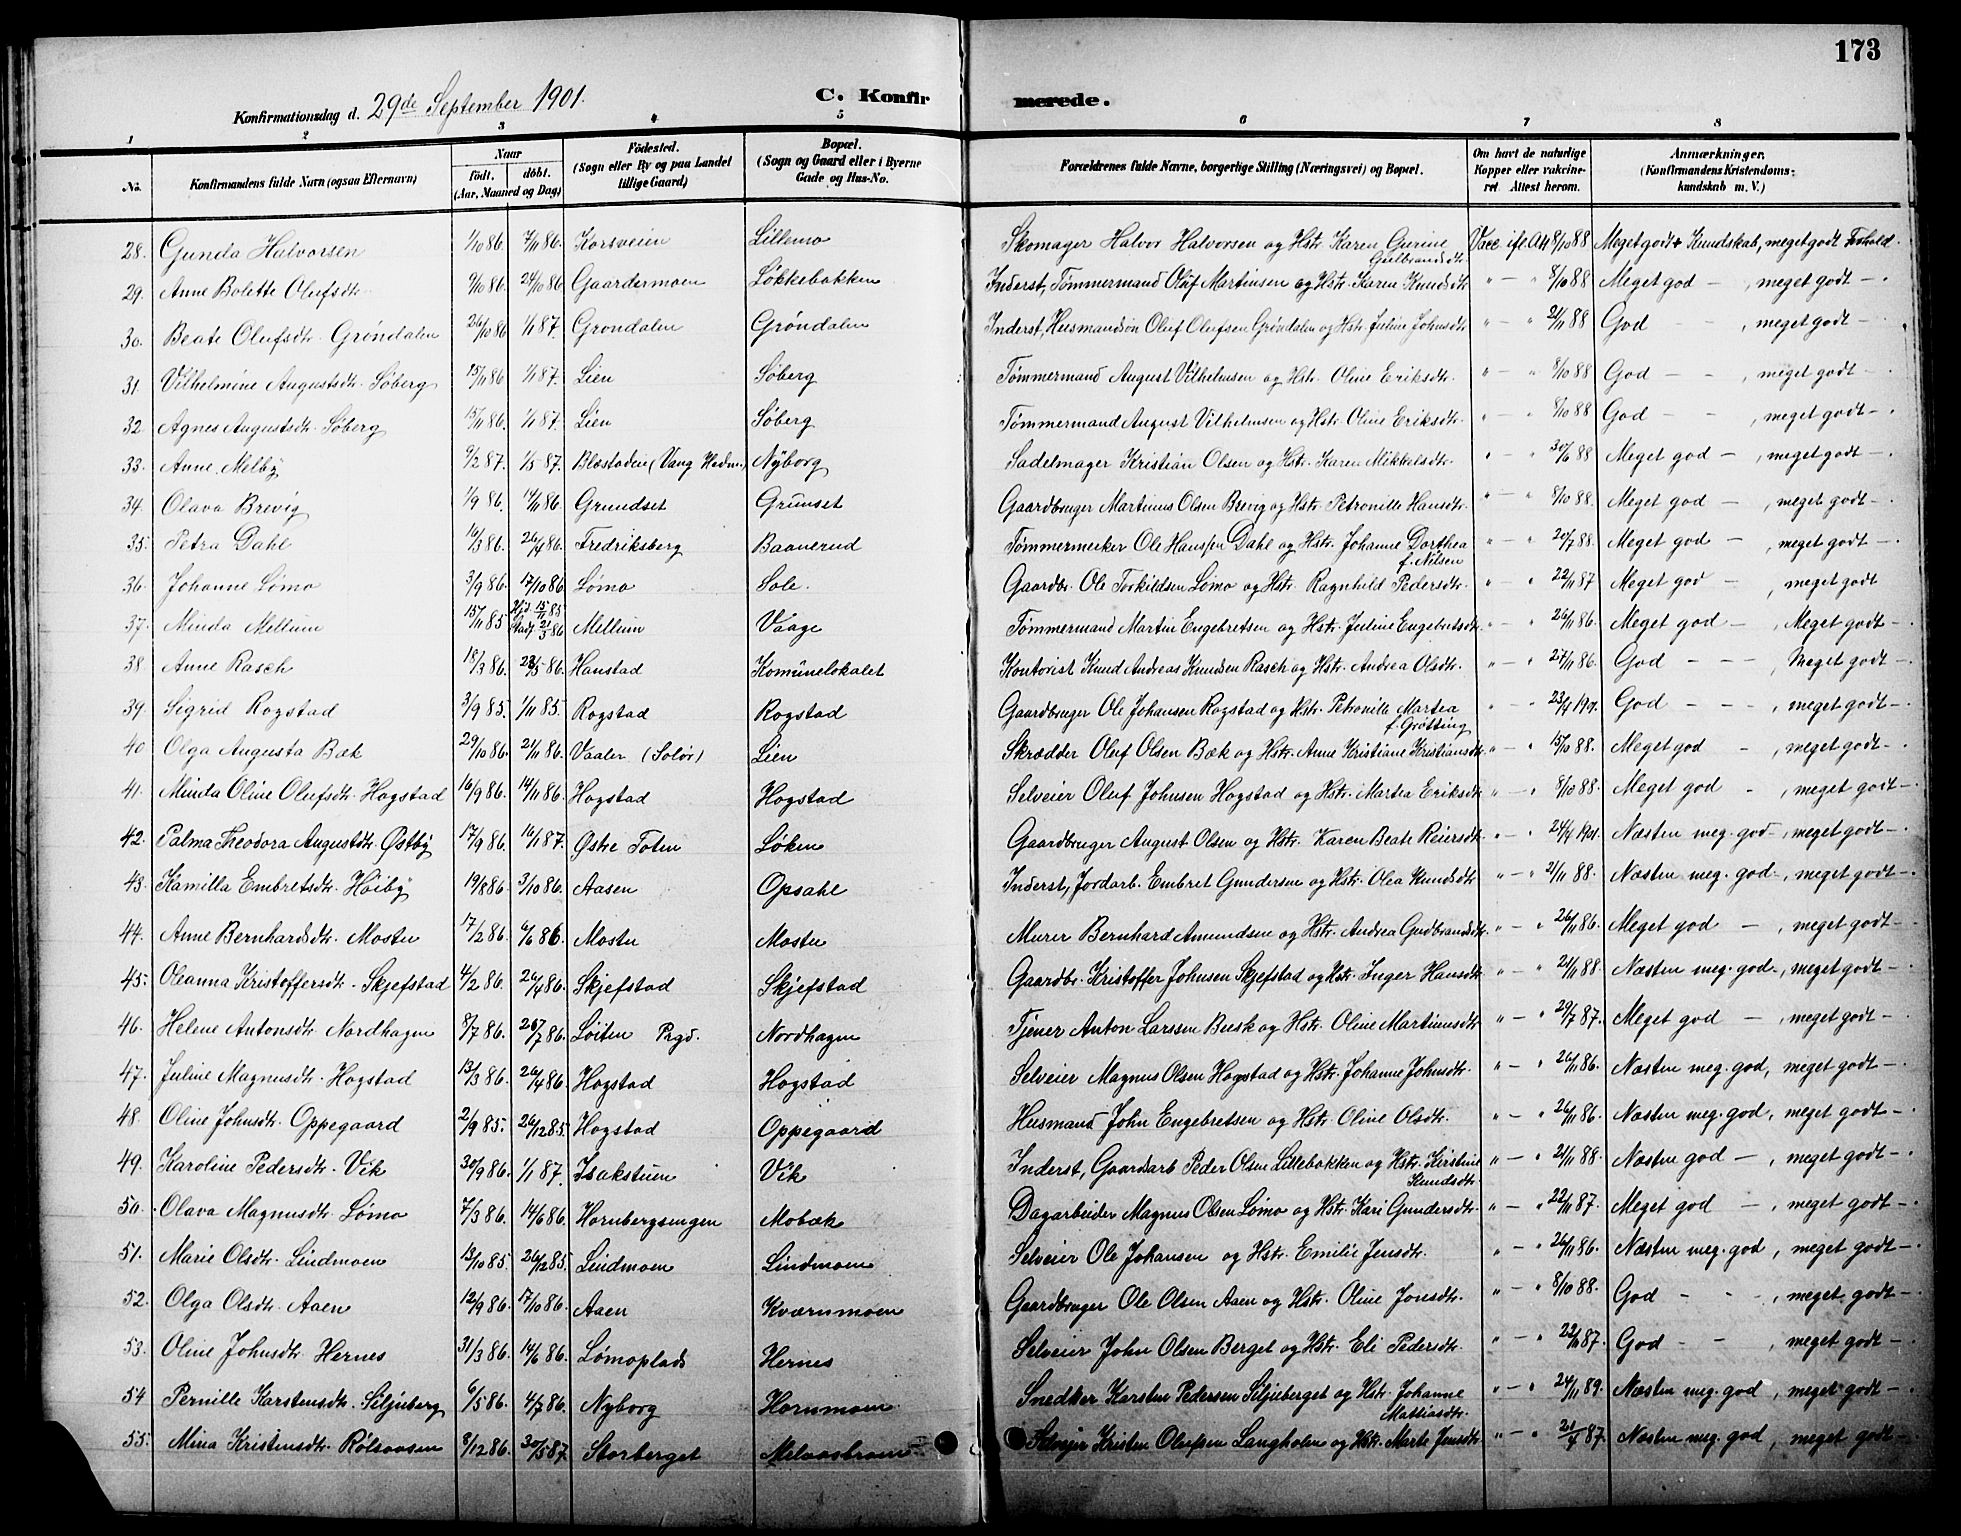 173
Konfirmationsdag d. 29de September 1901. C. Konfir merede.
1 2 3 4 5 6 7 8
No. Konfirmandens fulde Navn (ogsaa Efternavn) Naar født. døbt. (Aar, Maaned og Dag) Fødested. (Sogn eller By og paa Landet tillige Gaard) Bopæl. (Sogn og Gaard eller i Byerne Gade og Hus-No. Forældrenes fulde Navne, borgerlige Stilling (Næringsvei) og Bopæl. Om havt de naturlige Kopper eller vakcineret. Attest herom. Anmærkninger. (Konfirmandens Kristendomskundskab m. V.)
28. Gunda Halvorsen 1/10 86. 7/11 86. Korsveien Lillemo Skomager Halvor Halvorsen og Hstr. Karen Gurine Gulbrandsdtr. Vacc. ifl. Att 8/10 88 Meget godt Kundskab, meget godt Forhold.
29. Anne Bolette Olufsdtr. 9/10 86 24/10 86 Gaardermoen Løkkebakken Inderst, Tømmermand Oluf Martinsen og Hstr. Karen Knudsdtr " — " 8/10 88 Meget god — , meget godt —
30. Beate Olufsdtr. Grøndalen 26/10 86 1/1 87. Grøndalen Grøndalen Inderst, Husmandsøn Oluf Olufsen Grøndalen og Hstr. Juline Johnsdtr " — " 21/11 88 God — , meget godt —
31 Vilhelmine Augustsdtr. Søberg 15/11 86 1/1 87. Lien Søberg Tømmermand August Vilhelmsen og Hstr. Oline Eriksdtr. " — " 8/10 88 God — — , meget godt —
32. Agnes Augustsdtr. Søberg 15/11 86. 1/1 87. Lien Søberg Tømmermand August Vilhelmsen og Hstr. Oline Eriksdtr. " — " 8/10 88 God — — , meget godt —
33. Anne Melby 9/2 87. 1/5 87. Blæstadeie (Vang Hedm.) Nyborg Sadelmager Kristian Olsen og Hstr. Karen Mikkelsdtr. " — " 30/6 88 Meget god — , meget godt —
34. Olava Brevig 1/9 86. 14/11 86. Grundset Grunset Gaardbruger Martinus Olsen Brevig og Hstr. Petronille Hansdtr. " — " 8/10 88. Meget god — , meget godt —
35. Petra Dahl 16/3 86. 26/4 86. Fredriksberg Baanerud Tømmermerker Ole Hanssen Dahl og Hstr. Johanne Dorthea f. Nilsen " — " 20/7 88. Meget god — , meget godt —
36. Johanne Lømo 3/9 86. 17/10 86. Lømo Sole. Gaardbr. Ole Torkildsen Lømo og Hstr. Ragnhild Pedersdtr. " — " 22/11 87 Meget god — , meget godt
37. Minda Mellum 15/11 85 Hjd. 15/11 85 Stadf. 21/3 86 Mellum Vaage Tømmermand Martin Engebretsen og Hstr. Juline Engebretsdtr. " — " 26/11 86. Meget god — , Meget godt —
38 Anne Rasch 18/3 86. 23/5 86. Hanstad Komûnelokalet Kontorist Knud Andreas Knudsen Rasch og Hstr. Andrea Olsdtr. " — " 27/11 86. God — — — , Meget godt —
39. Sigrid Rogstad 3/9 85. 1/11 85. Rogstad Rogstad Gaardbruger Ole Johansen Rogstad og Hstr. Petronille Martea f. Grøtting " — " 23/4 1901. God — — — , meget godt —
40 Olga Augusta Bæk 29/10 86. 21/11 86. Vaaler (Solør) Lien Skrædder Oluf Olsen Bæk og Hstr. Anne Kristiane Kristiansdtr. " — " 15/10 88. Meget god — , meget godt —
41. Minda Oline Olufsdtr. Hogstad 16/9 86. 14/11 86. Hogstad Hogstad Selveier Oluf Johnsen Hogstad og Hstr. Martea Eriksdtr " — " 8/10 88. Meget god — , meget godt —
42. Palma Theodora Augustsdtr. Østby 17/9 86. 16/1 87. Østre Toten Løken Gaardbruger August Olsen og Hstr. Karen Beate Reiersdtr " — " 24/4 1901. Næsten meg. god —, meget godt —
43. Kamilla Embretsdtr. Høiby 19/8 86. 3/10 86. Aasen Opsahl Inderst, Jordarb. Embret Gundersen og Hstr. Olea Knudsdtr " — " 21/11 88. Næsten meg. god —, meget godt —
44. Anne Bernhardsdtr. Mosten 17/2 86. 6/6 86. Mosten Mosten Murer Bernhard Amundsen og Hstr. Andrea Gudbrandsdtr. " — " 26/11 86. Meget god — , meget godt —
45. Oleanna Kristoffersdtr. Skjefstad 4/2 86. 26/4 86. Skjefstad Skjefstad Gaardbr. Kristoffer Johnsen Skjefstad og Hstr. Inger Hansdtr. " — " 21/11 88. Næsten meg. god —, meget godt —
46. Helene Antonsdtr Nordhagen 8/7 86. 26/7 86. Løiten Prgd. Nordhagen Tjener Anton Larssen Busk og Hstr. Oline Martinusdtr. " — " 29/7 87. Meget god — , meget godt —
47. Juline Magnusdtr. Hogstad 13/3 86. 26/4 86. Hogstad Hogstad Selveier Magnus Olsen Hogstad og Hstr. Johanne Johnsdtr. " — " 26/11 86. Næsten meg. god, meget godt —
48. Oline Johnsdtr. Oppegaard 2/9 85. 26/12 85. Hogstad Oppegaard Husmand John Engebretsen og Hstr. Oline Olsdtr. " — " 26/11 86. Næsten meg. god, meget godt —
49. Karoline Pedersdtr. Vik 30/9 86. 1/1 87. Isakstuen Vik Inderst, Gaardarb Peder Olsen Lillebakken og Hstr. Kirstine Knudsdtr. " — " 21/11 88. Næsten god — , meget godt —
50. Olava Magnusdtr. Lømo 7/3 86. 14/6 86. Hornbergsengen Mobæk Dagarbeider Magnus Olsen Lømo og Hstr. Kari Gundersdtr. " — " 22/11 87. Meget god — , meget godt —
51. Marie Olsdtr. Lindmoen 13/10 85. 26/12 85. Lindmoen Lindmoen Selveier Ole Johansen og Hstr. Emilie Jensdtr. " — " 26/11 86. Næsten meg. god , meget godt —
52. Olga Olsdtr. Aaen 12/9 86. 17/10 86. Aaen Kværnmoen Gaardbruger Ole Olsen Aaen og Hstr. Oline Jonsdtr. " — " 8/10 88. God — — , meget godt —
53. Oline Johnsdtr. Hernes 31/3 86. 14/6 86. Lømoplads Hernes Selveier John Olsen Berget og Hstr. Eli Pedersdtr. " — " 22/11 87. God — — , meget godt —
54 Pernille Karstensdtr. Siljuberg 6/5 86. 4/7 86. Nyborg Hornmoen Snedker Karsten Pedersen Siljuberget og Hstr. Johanne Mathiasdtr. " — " 24/11 89. Næsten meg. god , meget godt —
55. Mina Kristensdtr. 8/12 86. 30/5 87. Storberget Selveier Kristen Olufsen Langholen og Hstr. Marte Jensdtr. " — " 21/4 87. Næsten meg. god , meget godt —